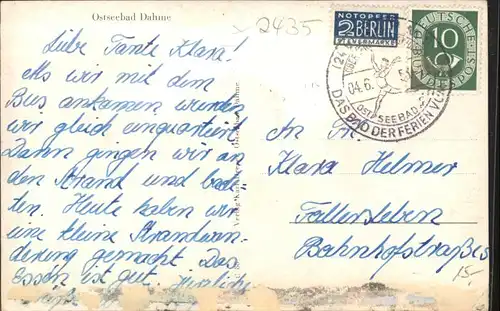 Ostseebad Dahme
2435
Liebe Tante Klara!
Als wir mit dem
Bus ankamen wurden
wir gleich einquartiert.
Dann gingen wir an
den Strand und bade
ten. Heute haben wir
eine kleine Strandwan
derung gemacht. Das
Essen ist gut. herzliche
NOTOPFER
2 BERLIN
STEUERMARKE
DEUTSCHE
BUNDESPOST
10
04.6.
OSTSEEBAD
DAS BAD DER FERIEN
An Fr.
Klara Helmer
Fallersleben
Bahnhofstraße
15.-